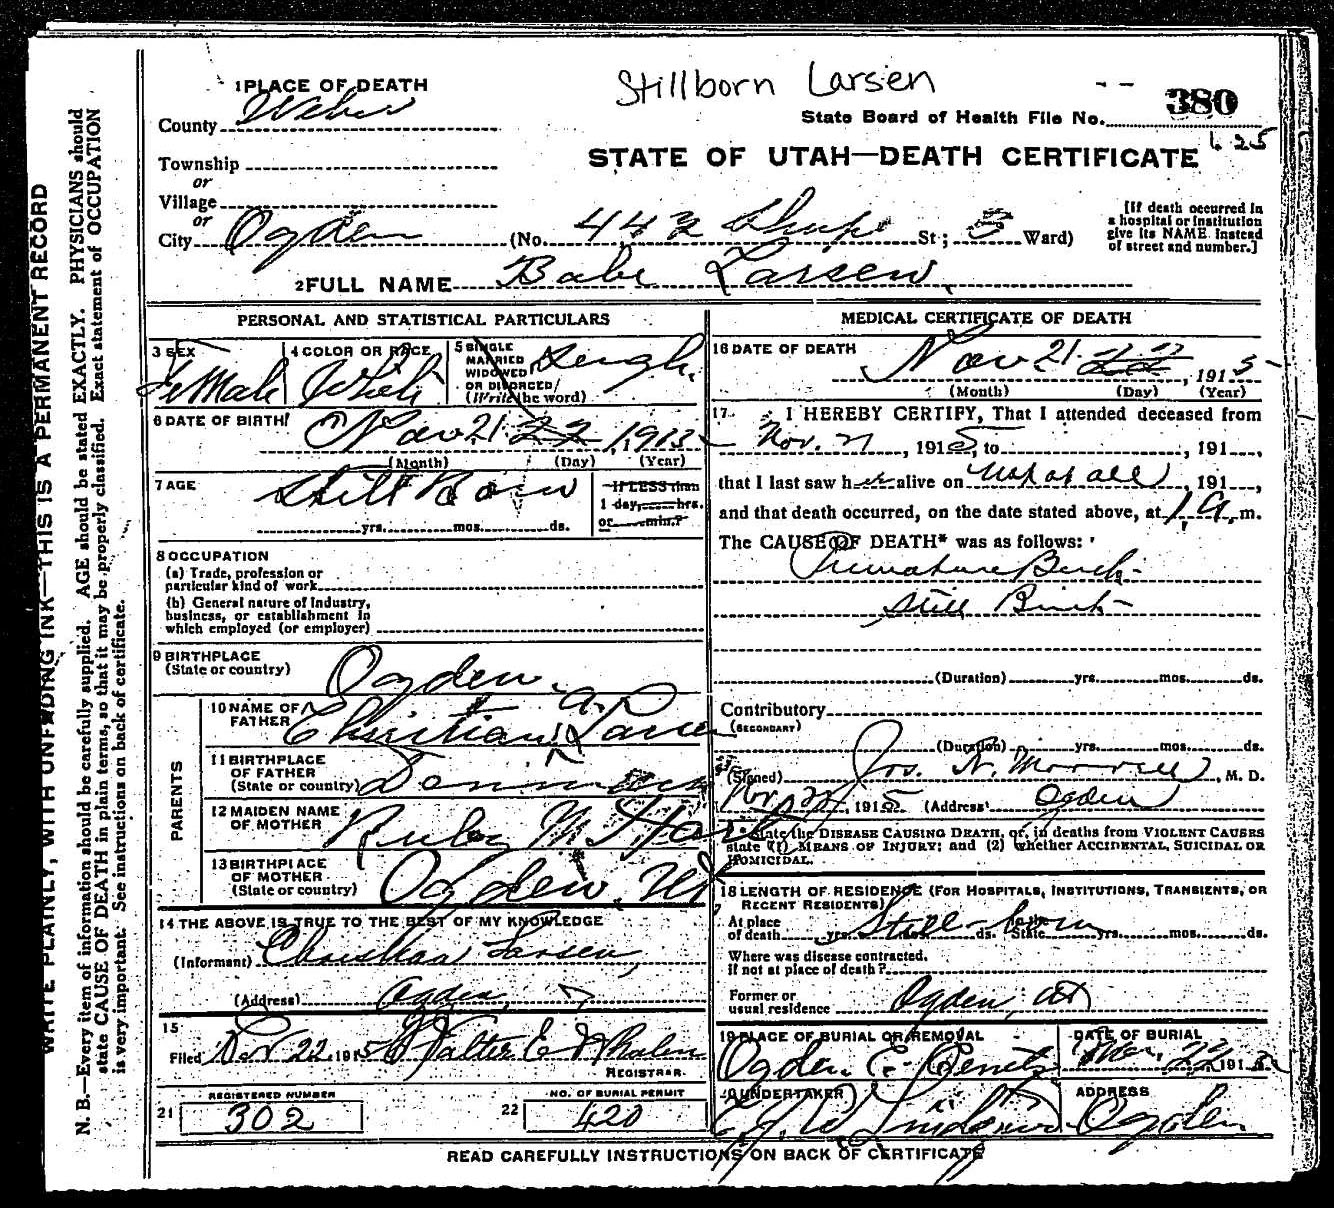 Stillborn Larsen
380
State Board of Health File No.
625
STATE OF UTAH—DEATH CERTIFICATE
1 PLACE OF DEATH
County Weber
Township
or
Village
or
City Ogden (No. 442 Shupe St; 5 Ward)
[If death occurred in
a hospital or institution
give its NAME instead
of street and number.]
2 FULL NAME Babe Larsen
PERSONAL AND STATISTICAL PARTICULARS
3 SEX Female
4 COLOR OR RACE White
5 SINGLE
MARRIED
WIDOWED
OR DIVORCED
(Write the word)
6 DATE OF BIRTH Nov 21 22, 1915
(Month) (Day) (Year)
7 AGE Still Born
yrs. mos. ds.
If LESS than
1 day, hrs.
or min.?
8 OCCUPATION
(a) Trade, profession or
particular kind of work
(b) General nature of Industry,
business, or establishment in
which employed (or employer)
9 BIRTHPLACE
(State or country) Ogden.
PARENTS
10 NAME OF
FATHER Christian A. Larsen
11 BIRTHPLACE
OF FATHER
(State or country) Denmark
12 MAIDEN NAME
OF MOTHER Ruby M Hart
13 BIRTHPLACE
OF MOTHER
(State or country) Ogden, Ut
14 THE ABOVE IS TRUE TO THE BEST OF MY KNOWLEDGE
(Informant) Christian Larsen,
(Address) Ogden,
15
Filed Nov 22 1915 Walter E Whalen
REGISTRAR.
21 REGISTERED NUMBER
302
22 NO. OF BURIAL PERMIT
420
MEDICAL CERTIFICATE OF DEATH
16 DATE OF DEATH Nov 21, 1915
(Month) (Day) (Year)
17 I HEREBY CERTIFY, That I attended deceased from
Nov. 21, 1915, to , 191
that I last saw her alive on not at all, 191
and that death occurred, on the date stated above, at 1 A. m.
The CAUSE OF DEATH* was as follows:
Premature Birth-
Still Birth-
(Duration) yrs. mos. ds.
Contributory
(SECONDARY)
(Duration) yrs. mos. ds.
(Signed) Jos. R. Morrell, M. D.
Nov 22, 1915 (Address) Ogden
*State the DISEASE CAUSING DEATH, or, in deaths from VIOLENT CAUSES
state (1) MEANS OF INJURY; and (2) whether ACCIDENTAL, SUICIDAL OR
HOMICIDAL.
18 LENGTH OF RESIDENCE (FOR HOSPITALS, INSTITUTIONS, TRANSIENTS, OR
RECENT RESIDENTS)
At place
of death yrs. mos. ds. In the State yrs. mos. ds.
Still born
Where was disease contracted,
if not at place of death?
Former or
usual residence Ogden, Ut
19 PLACE OF BURIAL OR REMOVAL
Ogden
DATE OF BURIAL
Nov. 22, 1915
20 UNDERTAKER
Lindquist
ADDRESS
Ogden
READ CAREFULLY INSTRUCTIONS ON BACK OF CERTIFICATE
WRITE PLAINLY, WITH UNFADING INK—THIS IS A PERMANENT RECORD
N. B.—Every item of information should be carefully supplied. AGE should be stated EXACTLY. PHYSICIANS should
state CAUSE OF DEATH in plain terms, so that it may be properly classified. Exact statement of OCCUPATION
is very important. See instructions on back of certificate.